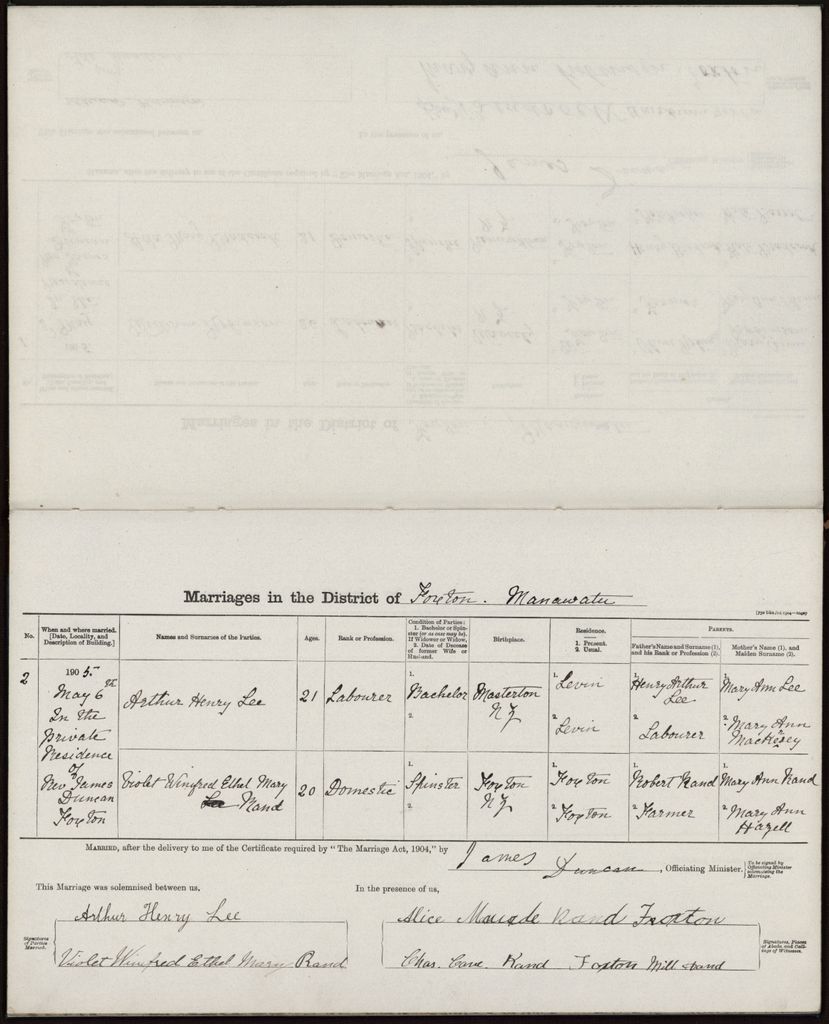 Marriages in the District of Foxton. Manawatu
No.
When and where married. [Date, Locality, and Description of Building.]
Names and Surnames of the Parties.
Ages.
Rank or Profession.
Condition of Parties: 1. Bachelor or Spinster (or as case may be). If Widower or Widow, 2. Date of Decease of former Wife or Husband.
Birthplace.
Residence. 1. Present. 2. Usual.
PARENTS.
Father's Name and Surname (1), and his Rank or Profession (2).
Mother's Name (1), and Maiden Surname (2).
2
1905.
May 6th
In the
private
Residence
of
Rev. James
Duncan
Foxton
Arthur Henry Lee
21
Labourer
1. Bachelor
2.
Masterton
NZ
1. Levin
2. Levin
1. Henry Arthur
Lee
2. Labourer
1. Mary Ann Lee
2. Mary Ann
Violet Winifred Ethel Mary
Lee Rand
20
Domestic
1. Spinster
2.
Foxton
NZ
1. Foxton
2. Foxton
1. Robert Rand
2. Farmer
1. Mary Ann Rand
2. Mary Ann
Hazell
MARRIED, after the delivery to me of the Certificate required by "The Marriage Act, 1904," by James Duncan, Officiating Minister.
[To be signed by Officiating Minister solemnizing the Marriage.
This Marriage was solemnised between us,
In the presence of us,
Signatures of Parties Married.
Arthur Henry Lee
Violet Winifred Ethel Mary Rand
Alice Maude Rand Foxton
Chas. Rand Foxton Mill hand
Signatures, Places of Abode, and Callings of Witnesses.